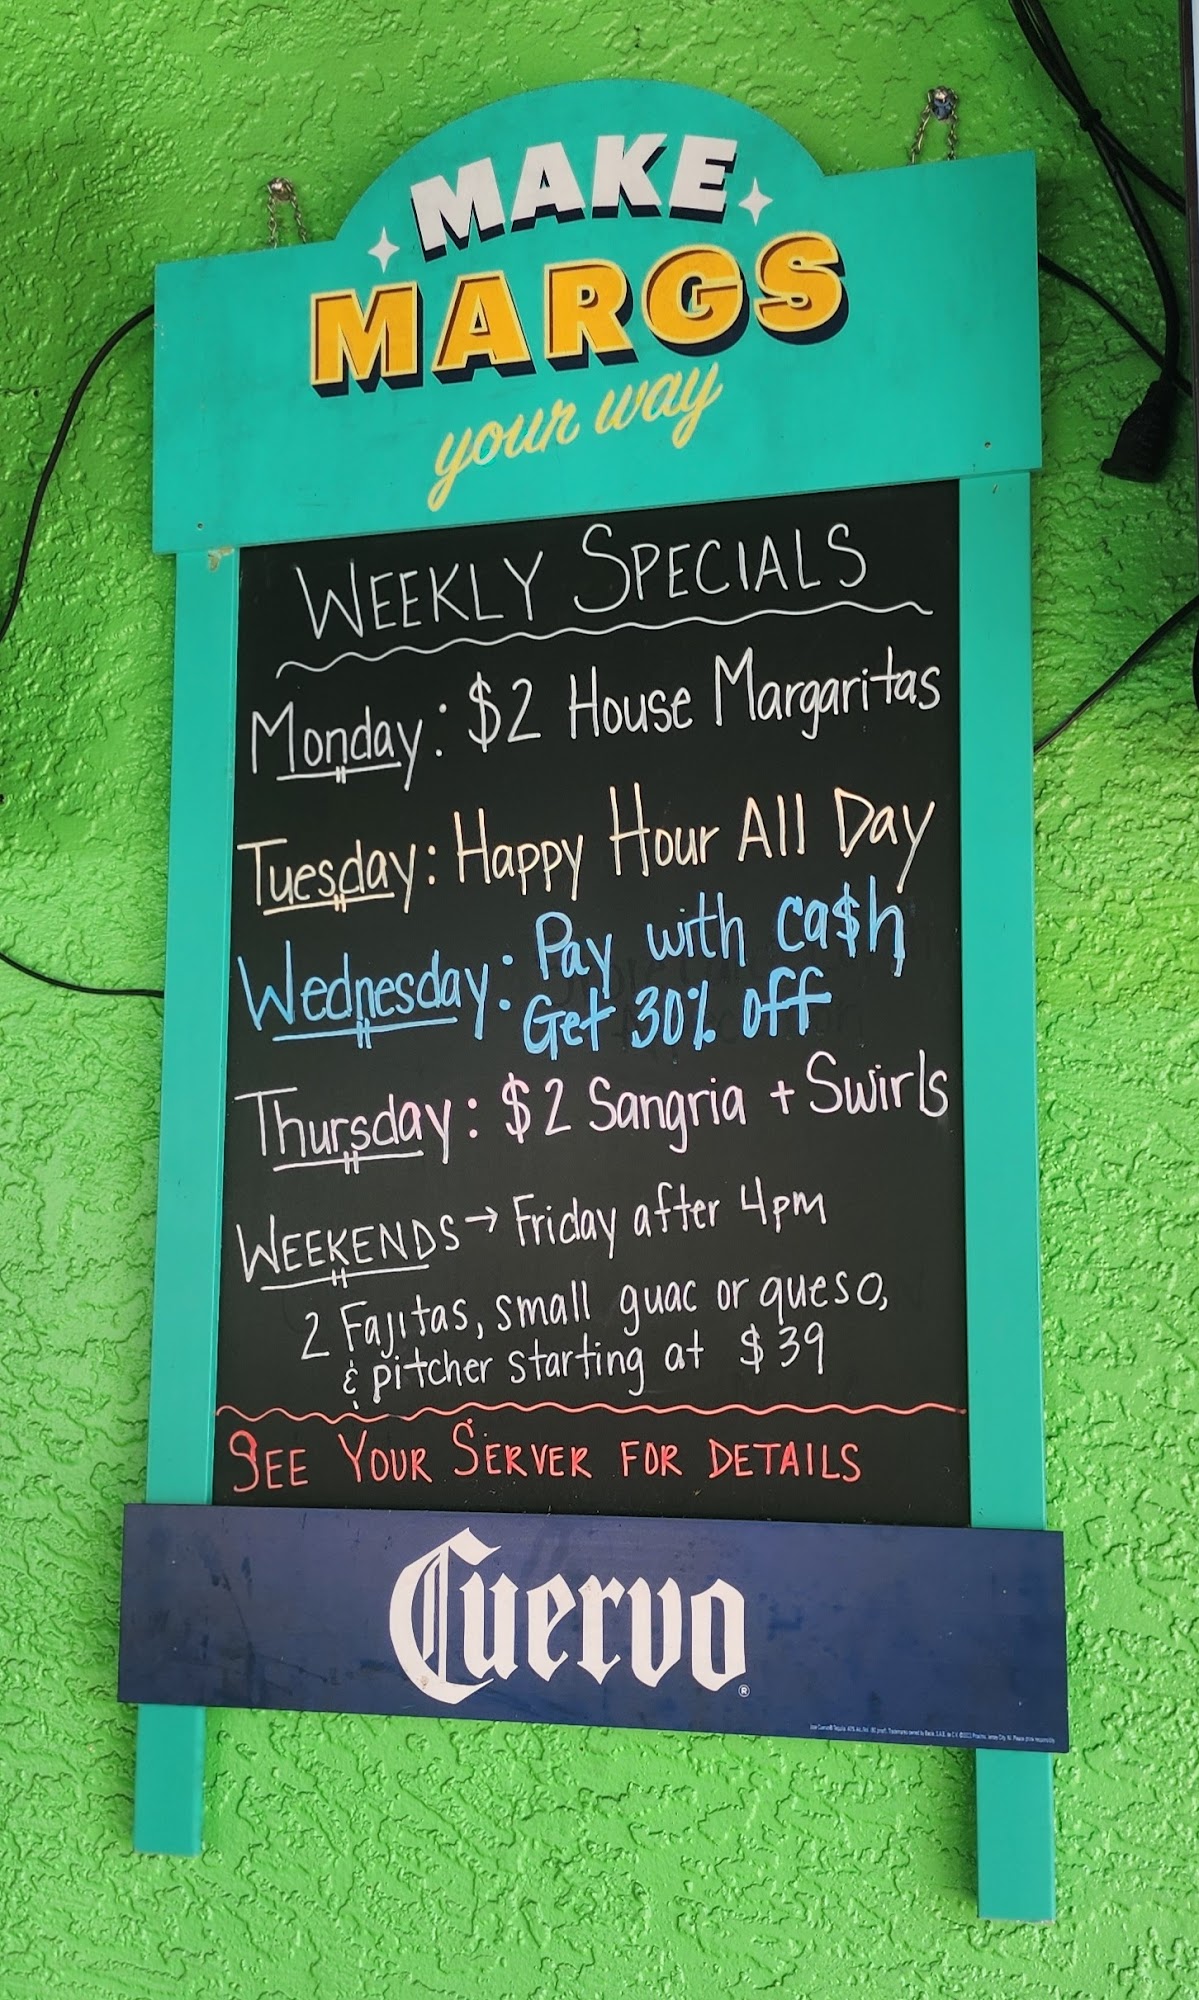 MAKE
MARGS
your way
WEEKLY SPECIALS
Monday: $2 House Margaritas
Tuesday: Happy Hour All Day
Wednesday: Pay with ca$h
Get 30% off
Thursday: $2 Sangria + Swirls
WEEKENDS → Friday after 4pm
2 Fajitas, small guac or queso,
& pitcher starting at $39
SEE YOUR SERVER FOR DETAILS
Cuervo®